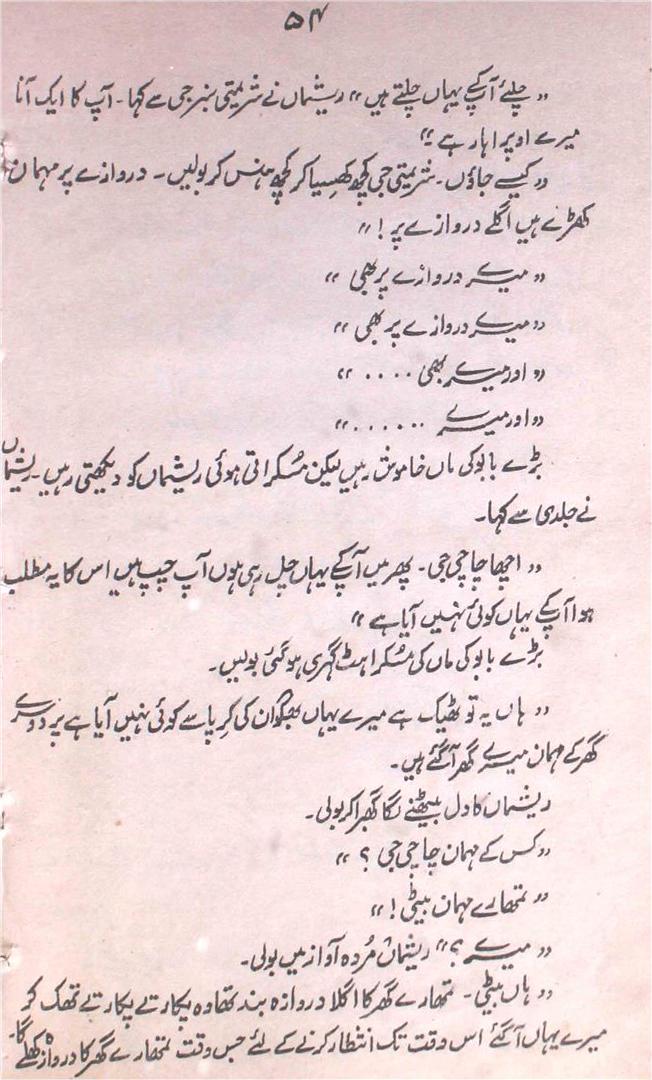 ۵۴
”چلئے آپ کے یہاں چلتے ہیں“ ریشماں نے شریمتی بنرجی سے کہا۔ آپ کا ایک آنا
میرے اوپر اہار ہے“
”کیسے جاؤں۔ شریمتی جی کچھ کھسیا کر کچھ ہنس کر بولیں۔ دروازے پر مہمان
کھڑے ہیں اگلے دروازے پر!“
”میرے دروازے پر بھی“
”میرے دروازے پر بھی“
”اور میرے بھی ....“
”اور میرے ......“
بڑے بابو کی ماں خاموش رہیں لیکن مسکراتی ہوئی ریشماں کو دیکھتی رہیں۔ ریشماں
نے جلدی سے کہا۔
”اچھا چاچی جی۔ پھر میں آپ کے یہاں چل رہی ہوں آپ چپ ہیں اس کا یہ مطلب
ہوا آپ کے یہاں کوئی نہیں آیا ہے“
بڑے بابو کی ماں کی مسکراہٹ گہری ہوگئی بولیں۔
”ہاں یہ تو ٹھیک ہے میرے یہاں بھگوان کی کرپا سے کوئی نہیں آیا ہے پر دوسرے
گھر کے مہمان میرے گھر آگئے ہیں۔
ریشماں کا دل بیٹھنے لگا گھبرا کر بولی۔
”کس کے مہمان چاچی جی؟“
”تمھارے مہمان بیٹی!“
”میرے؟“ ریشماں مُردہ آواز میں بولی۔
”ہاں بیٹی۔ تمھارے گھر کا اگلا دروازہ بند تھا وہ پکارتے پکارتے تھک کر
میرے یہاں آگئے اس وقت تک انتظار کرنے کے لئے جس وقت تمھارے گھر کا دروازہ کھلے گا۔